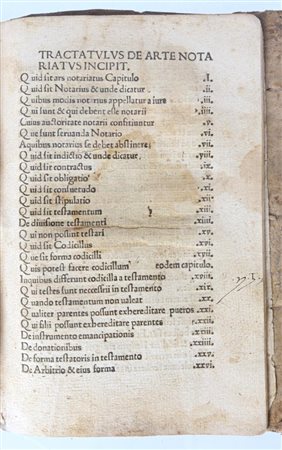 TRACTATVLVS DE ARTE NOTA
RIATVS INCIPIT.
Quid sit ars notariatus Capitulo .I.
Quid sit Notarius & unde dicatur .ii.
Quibus modis notarius appellatur a iure .iii.
Qui sunt & qui debent esse notarii .iiii.
Cuius auctoritate notarii constituuntur .v.
Que sunt seruanda Notario .vi.
A quibus notarius se debet abstinere .vii.
Quid sit indictio & unde dicatur .viii.
Quid sit contractus .ix.
Quid sit obligatio .x.
Quid sit consuetudo .xi.
Quid sit stipulatio .xii.
Quid sit testamentum .xiii.
De diuisione testamenti .xiiii.
Qui non possunt testari .xv.
Quid sit Codicillus .xvi.
Que sit forma codicilli .xvii.
Quis potest facere codicillum eodem capitulo.
In quibus differunt codicilla a testamento .xviii.
Qui testes sunt neccessarii in testamento .xix.
Quando testamentum non ualeat .xx.
Qualiter parentes possunt exhereditare pueros .xxi.
Qui filii possunt exhereditare parentes .xxii.
De instrumento emancipationis .xxiii.
De donationibus .xxiiii.
De forma testatoris in testamento .xxv.
De Arbitrio & eius forma .xxvi.